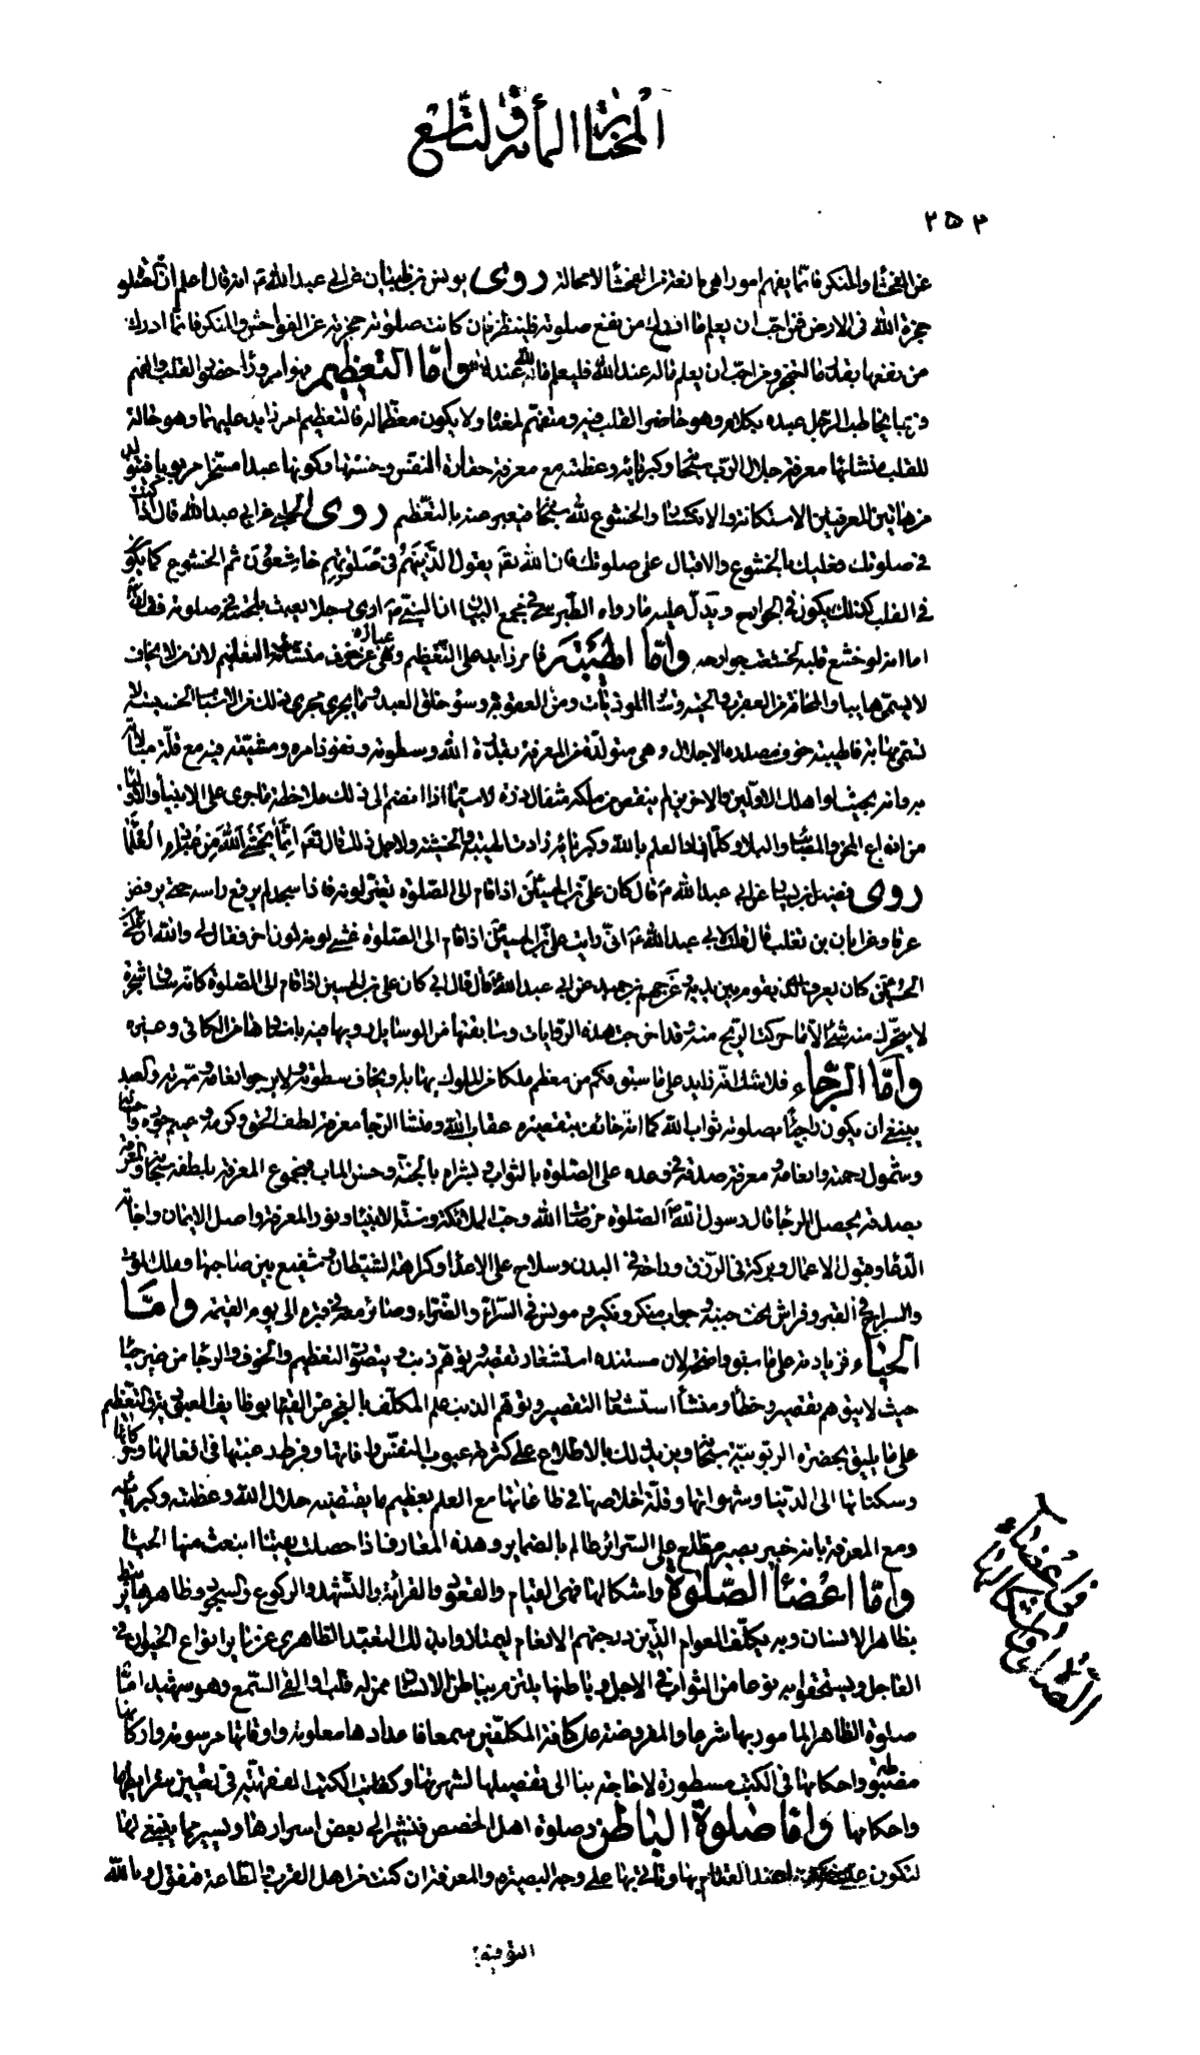 المختار المأة و التاسع
٢٥٣
عن الفحشاء والمنكر فانما يفهم امورا هى مانعة من الفحشاء لا محالة روى يونس بن ظبيان عن ابى عبد الله ع انه قال اعلم ان الصلوة
حجزة الله فى الارض فمن احب ان يعلم ما ادرك من نفع صلوته فلينظر فان كانت صلوته حجزته عن الفواحش والمنكر فانما ادرك
من نفعها بقدر ما انحجز ومن احب ان يعلم ماله عند الله فليعلم ما لله عنده واما التعظيم فهو امر وراء حضور القلب والفهم
فربما يخاطب الرجل عبده بكلام وهو حاضر القلب فيه ومتفهم لمعناه ولا يكون معظما له فالتعظيم امر زايد عليهما وهو حالة
للقلب منشاءها معرفة جلال الرب سبحانه وكبريائه وعظمته مع معرفة حقارة النفس وخستها وكونها عبدا مسخرا مربوبا فيتولد
من هاتين المعرفتين الاستكانة والانكسار والخشوع لله سبحانه فيعبر عنه بالتعظيم روى الحلبى عن ابى عبد الله قال اذا كنت
فى صلوتك فعليك بالخشوع والاقبال على صلوتك فان الله تعم يقول الذين هم فى صلوتهم خاشعون ثم الخشوع كما يكون
فى القلب كذلك يكون فى الجوارح ويدل عليه ما رواه الطبرسى فى مجمع البيان ان النبى ص راى رجلا يعبث بلحيته فى صلوته فقال
اما انه لو خشع قلبه لخشعت جوارحه واما الهيبة فامر زايد على التعظيم وهى عبارة عن خوف منشاؤه التعظيم لان من لا يخاف
لا يسمى هايبا والمخافة من العقرب والحية وساير الموذيات ومن العقوبة وسوء خلق العبد وما يجرى مجرى ذلك من الاسباب الخسيسة لا
تسمى مهابة فالهيبة خوف مصدره الاجلال وهى متولدة من المعرفة بقدرة الله وسطوته ونفوذ امره ومشيته فيه مع قلة مبالاته
به وانه بحيث لو اهلك الاولين والاخرين لم ينقص من ملكه مثقال ذرة لا سيما اذا انضم الى ذلك ملاحظة ما جرى على الانبياء والاولياء
من انواع المحن والمصائب والبلاء وكلما زاد العلم بالله وكبريائه زادت الهيبة والخشية ولاجل ذلك قال تعم انما يخشى الله من عباده العلماء
روى فضيل بن يسار عن ابى عبد الله ع قال كان على بن الحسين اذا قام الى الصلوة تغير لونه فاذا سجد لم يرفع راسه حتى يرفض
عرقا وعن ابان بن تغلب قال قلت لابى عبد الله ع انى رايت على بن الحسين اذا قام الى الصلوة غشى لونه لون اخر فقال لى والله ان على بن
الحسين كان يعرف الذى يقوم بين يديه وعن جهم بن حميد عن ابى عبد الله قال قال ابى كان على بن الحسين اذا قام الى الصلوة كانه ساق شجرة
لا يتحرك منه شئ الا ما حركت الريح منه وقد اخرجت هذه الروايات وسابقتها من الوسايل رويها فيه باسنادها من الكافى وغيره
واما الرجاء فلا شك انه زايد على ما سبق فكم من معظم ملكا من الملوك يهابه او يخاف سطوته ولا يرجو انعامه ومبرته والعبد
ينبغى ان يكون راجيا بصلوته ثواب الله كما انه خائف بتقصيره عقاب الله ومنشا الرجا معرفة لطف الحق وكرمه وعميم جوده واحسانه
وشمول رحمته وانعامه ومعرفة صدقه فى وعده على الصلوة بالثواب وبشراه بالجنة وحسن الماب فبمجموع المعرفة بلطفه سبحانه والمعرفة
بصدقه يحصل الرجا قال رسول الله الصلوة مرضات الله وحب الملائكة وسنة الانبياء ونور المعرفة واصل الايمان واجابة
الدعاء وقبول الاعمال وبركة فى الرزق وراحة فى البدن وسلاح على الاعداء وكراهة الشيطان وشفيع بين صاحبها وملك الموت
والسراج فى القبر وفراش تحت جنبيه وجواب منكر ونكير ومونس فى السراء والضراء وصائر معه فى قبره الى يوم القيمة واما
الحياء فزيادته على ما سبق واضحة لان مستنده استشعار تقصير وتوهم ذنب ويتصور التعظيم والخوف والرجا من غير حياء
حيث لا يتوهم تقصير وخطاء ومنشأ استشعار التقصير وتوهم الذنب علم المكلف بالعجز عن القيام بوظايف العبودية والتعظيم
على ما يليق بحضرة الربوبية سبحانه ويزيد ذلك بالاطلاع على كثرة عيوب النفس وافاتها وفرط رغبتها فى افعالها وحركاتها
وسكناتها الى الدنيا وشهواتها وقلة اخلاصها فى طاعاتها مع العلم بعظيم ما يقتضيه جلال الله وعظمته وكبريائه
ومع المعرفة بانه خبير بصير مطلع على السرائر عالم بالضماير وهذه المعارف اذا حصلت يقينا انبعث منها الحياء
واما اعضاء الصلوة واشكالها فهى القيام والقعود والقرائة والتشهد والركوع والسجود وظاهرها مرتبط
بظاهر الانسان وبه يكلف العوام الذين درجتهم الانعام ليمتازوا بذلك التعبد الظاهرى عن ساير انواع الحيوان فى
العاجل ويستحقوا به نوعا من الثواب فى الاجل وباطنها يلتزم بباطن الانسان ممن له قلب او القى السمع وهو شهيد اما
صلوة الظاهر المامور بها شرعا والمفروضة على كافة المكلفين سمعا فاعدادها معلومة واوقاتها مرسومة واركانها
مضبوطة واحكامها فى الكتب مسطورة لا حاجة بنا الى تفصيلها لشهرتها وكفاية الكتب الفقهية فى تعيين شرايطها
واحكامها واما صلوة الباطن وصلوة اهل الخصوص فنشير الى بعض اسرارها ويسير مما ينبغى لها
لتكون على عند القيام بها وتاتى بها على وجه البصيرة والمعرفة ان كنت من اهل القرب والطاعة فنقول وبالله
فى اعضاء
الصلوة و اشكالها
التوفيق